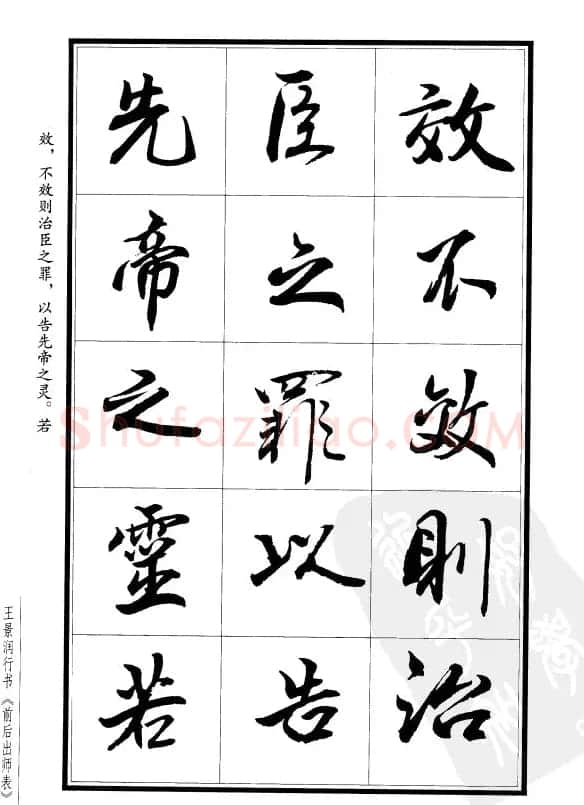 效不效則治
臣之罪以告
先帝之靈若
效，不效则治臣之罪，以告先帝之灵。若
王景润行书《前后出师表》
Shufaziliao.com